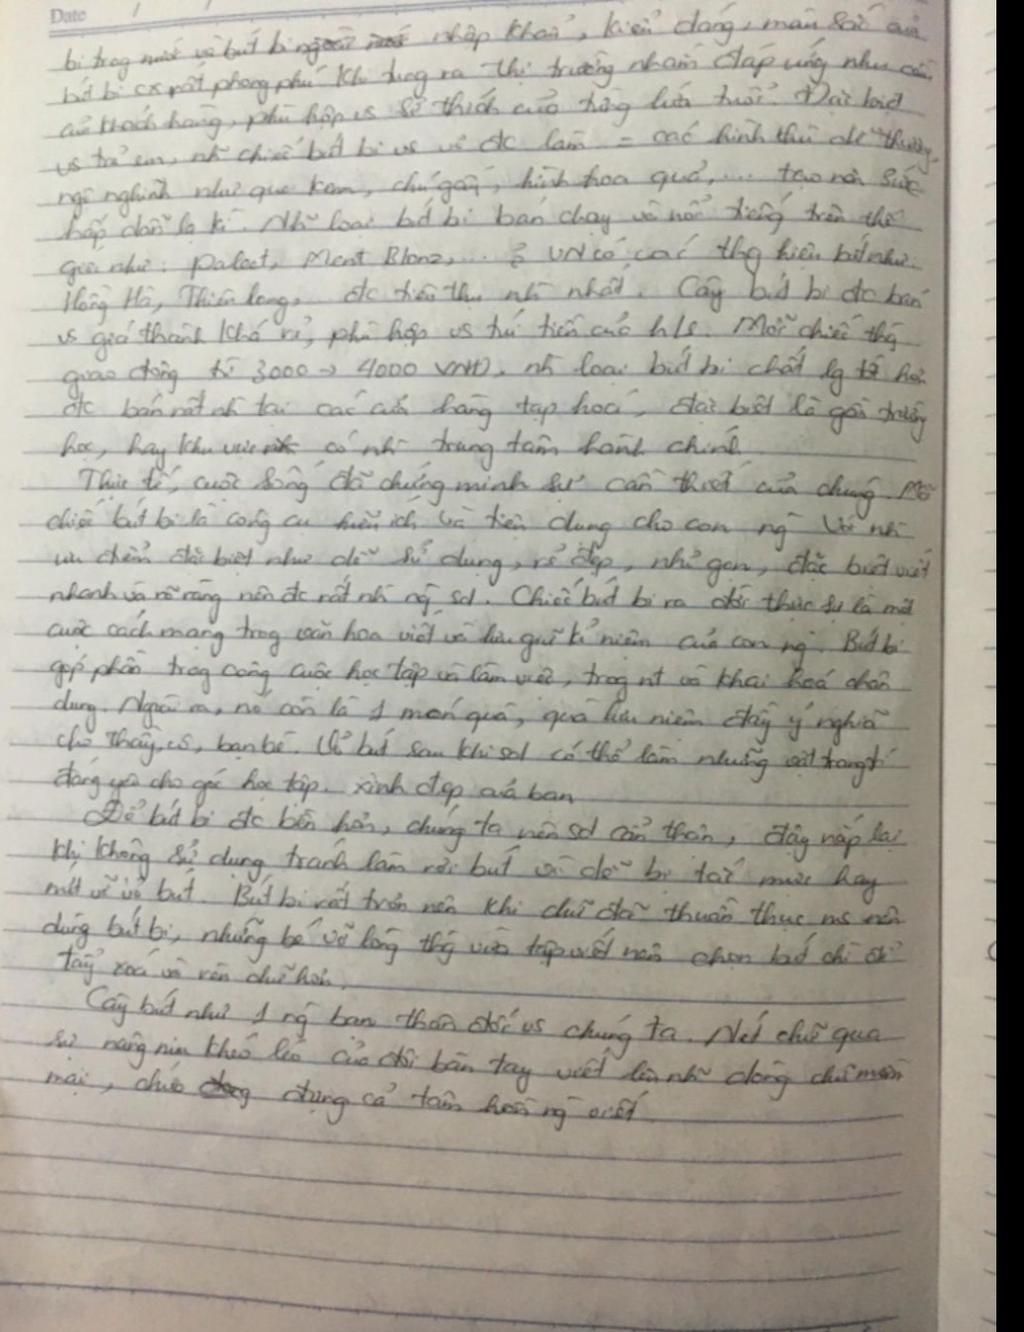 Date / /
bi trog nước và bút bi nhập khẩu, kiểu dáng, màu sắc của
bút bi cx rất phong phú khi tung ra thị trường nhằm đáp ứng nhu cầu
của khách hàng, phù hợp vs sở thích của từng lứa tuổi. Đặc biệt
vs trẻ em, nh~ chiếc bút bi vs vẻ đc làm = các hình thù dễ thương,
ngộ nghĩnh như que kem, chú gấu, hình hoa quả,... tạo nên sức
hấp dẫn lạ kì. Nh~ loại bút bi bán chạy và nổi tiếng trên thế
giới như: Mont Blanc,... ở VN có các thg hiệu bút như:
Hồng Hà, Thiên Long, đc tiêu thụ nh` nhất. Cây bút bi đc bán
vs giá thành khá rẻ, phù hợp vs túi tiền của h/s. Mỗi chiếc thg
giao động từ 3000 → 4000 VNĐ. nh~ loại bút bi chất lg tốt hơn
đc bán rất nh` tại các cửa hàng tạp hoá, đặc biệt là gần trường
học, hay khu vực có nh` trung tâm hành chính
Thực tế, cuộc sống đã chứng minh sự cần thiết của chúng. Mỗi
chiếc bút bi là công cụ hữu ích và tiện dụng cho con ng` Với nh~
ưu điểm đặc biệt như dễ sử dụng, rẻ đẹp, nhỏ gọn, đặc biệt viết
nhanh và rõ ràng nên đc rất nh` ng` sd. Chiếc bút bi ra đời thực sự là một
cuộc cách mạng trog văn hoá viết và lưu giữ kỉ niệm của con ng`. Bút bi
góp phần trog công cuộc học tập và làm việc, trog nt và khai hoá chân
dung. Ngoài ra, nó còn là 1 món quà, quà lưu niệm đầy ý nghĩa
cho thầy, cô, bạn bè. Vỏ bút sau khi sd có thể làm những vật trang trí
đáng yêu cho góc học tập xinh đẹp của bạn
Để bút bi đc bền hơn, chúng ta nên sd cẩn thận, đậy nắp lại
khi không sử dụng tránh làm rơi bút vì dễ bị tắc mực hay
nứt vỡ vỏ bút. Bút bi rất trơn nên khi chữ đã thuần thục ms nên
dùng bút bi, những bé vỡ lòng thg vừa tập viết nên chọn bút chì để
tẩy xoá và rèn chữ hơn.
Cây bút như 1 ng` bạn thân đối vs chúng ta. Nét chữ qua
sự nâng niu khéo léo của đôi bàn tay viết lên nh~ dòng chữ mềm
mại, chứa đựng cả tâm hồn ng` viết